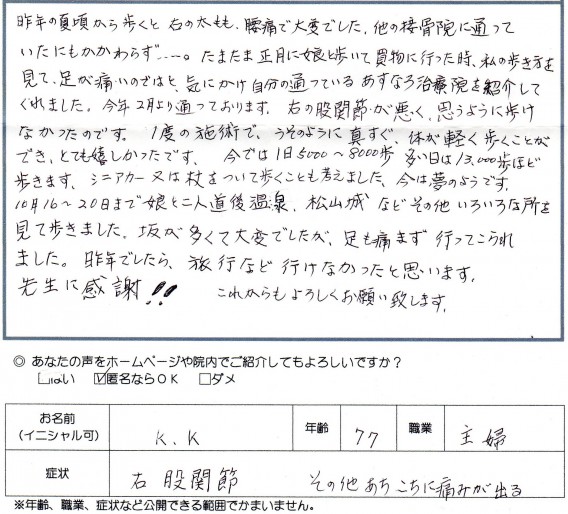 昨年の夏頃から歩くと右の太もも、腰痛で大変でした、他の接骨院に通って
いたにもかかわらず……。たまたま正月に娘と歩いて買物に行った時、私の歩き方を
見て、足が痛いのではと、気にかけ自分の通っているあすなろ治療院を紹介して
くれました。今年2月より通っております。右の股関節が悪く、思うように歩け
なかったのです。1度の施術で、うそのように真すぐ、体が軽く歩くことが
でき、とても嬉しかったです、今では1日5000~8000歩 多い日は13,000歩ほど
歩きます、シニアカー又は杖をついて歩くことも考えました、今は夢のようです。
10月16~20日まで娘と二人道後温泉、松山城などその他いろいろな所を
見て歩きました。坂が多くて大変でしたが、足も痛まず行ってこられ
ました。昨年でしたら、旅行など行けなかったと思います。
先生に感謝!! これからもよろしくお願い致します。
◎ あなたの声をホームページや院内でご紹介してもよろしいですか？
□はい ☑匿名ならOK □ダメ
お名前 (イニシャル可) K.K 年齢 77 職業 主婦
症状 右股関節 その他あちこちに痛みが出る
※年齢、職業、症状など公開できる範囲でかまいません。